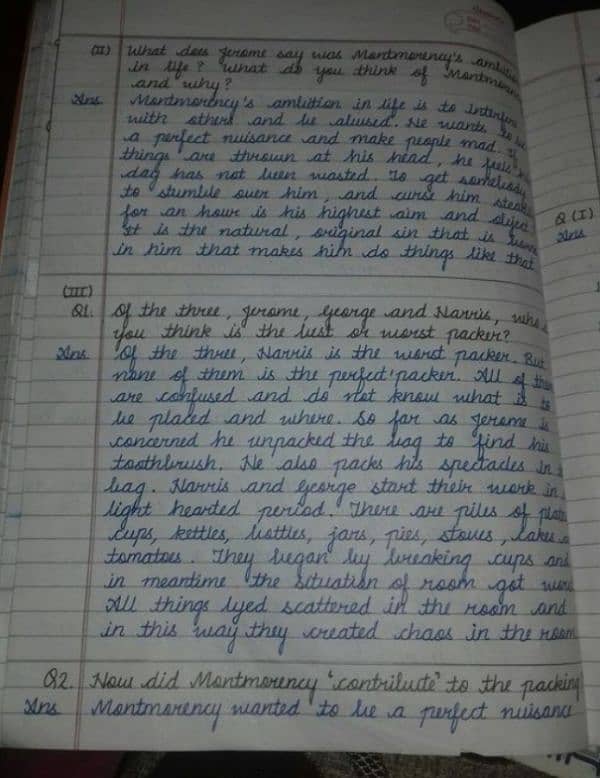 (II) What does Jerome say was Montmorency's
in life? What do you think of
and why?
Ans Montmorency's ambition in life is to
with others and be abused. He wants to be
a perfect nuisance and make people mad. If
things are thrown at his head, he feels his
day has not been wasted. To get somebody
to stumble over him, and curse him
for an hour is his highest aim and object
It is the natural, original sin that is
in him that makes him do things like that
Q (I)
Ans
(III)
Q1. Of the three, Jerome, George and Harris, who
you think is the best or worst packer?
Ans Of the three, Harris is the worst packer. But
none of them is the perfect packer. All of
are confused and do not know what is to
be placed and where. So far as Jerome is
concerned he unpacked the bag to find his
toothbrush. He also packs his spectacles in
bag. Harris and George start their work in
light hearted period. There are piles of
cups, kettles, bottles, jars, pies, stoves, cakes
tomatoes. They began by breaking cups and
in meantime the situation of room got
All things lyed scattered in the room and
in this way they created chaos in the room
Q2. How did Montmorency 'contribute' to the packing
Ans Montmorency wanted to be a perfect nuisance